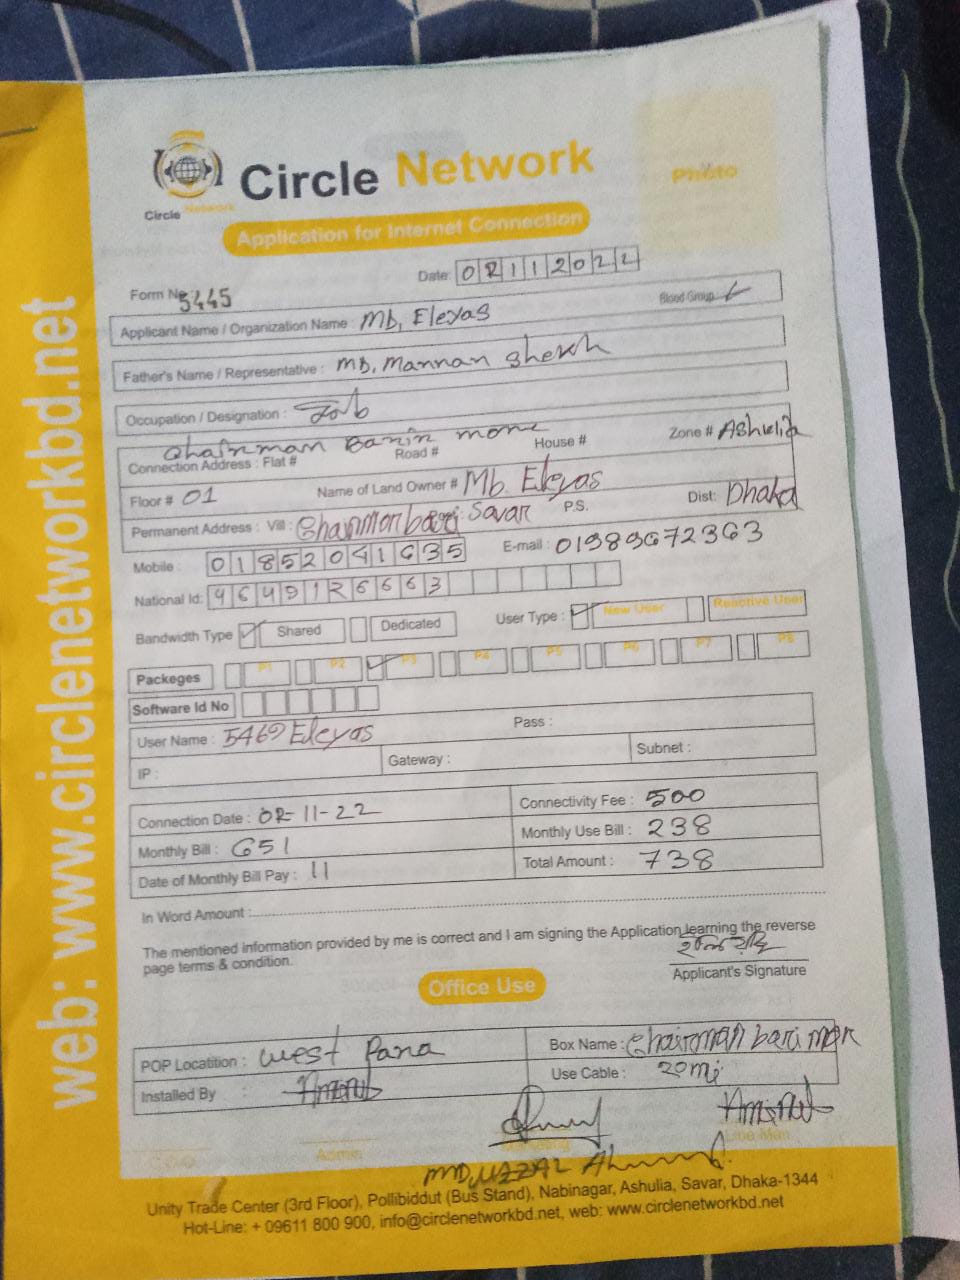 Circle Network
Circle Network
Photo
Application for Internet Connection
Date:
Form No 5445
Blood Group
Applicant Name / Organization Name : Mb, Eleyas
Father's Name / Representative : MD. Mannan Sheikh
Occupation / Designation : Job
Connection Address : Flat # Road # House # Zone # Ashulia
Floor # 01 Name of Land Owner # Mb. Eleyas
Permanent Address : Vill : Savar P.S. Dist: Dhaka
Mobile : 01852041635 E-mail : 01989672363
National Id: 4649126663
Bandwidth Type Shared Dedicated User Type : New User Reactive User
Packeges P1 P2 P3 P4 P5 P6 P7 P8
Software Id No
User Name : 5469 Eleyas Pass :
IP : Gateway : Subnet :
Connection Date : Connectivity Fee : 500
Monthly Bill : 651 Monthly Use Bill : 238
Date of Monthly Bill Pay : 11 Total Amount : 738
In Word Amount :
The mentioned information provided by me is correct and I am signing the Application learning the reverse
page terms & condition.
Applicant's Signature
Office Use
POP Locatition : West Para Box Name : Chairman bari
Installed By : Use Cable :
Admin
MD, UZZAL
Unity Trade Center (3rd Floor), Pollibiddut (Bus Stand), Nabinagar, Ashulia, Savar, Dhaka-1344
Hot-Line: + 09611 800 900, info@circlenetworkbd.net, web: www.circlenetworkbd.net
web: www.circlenetworkbd.net